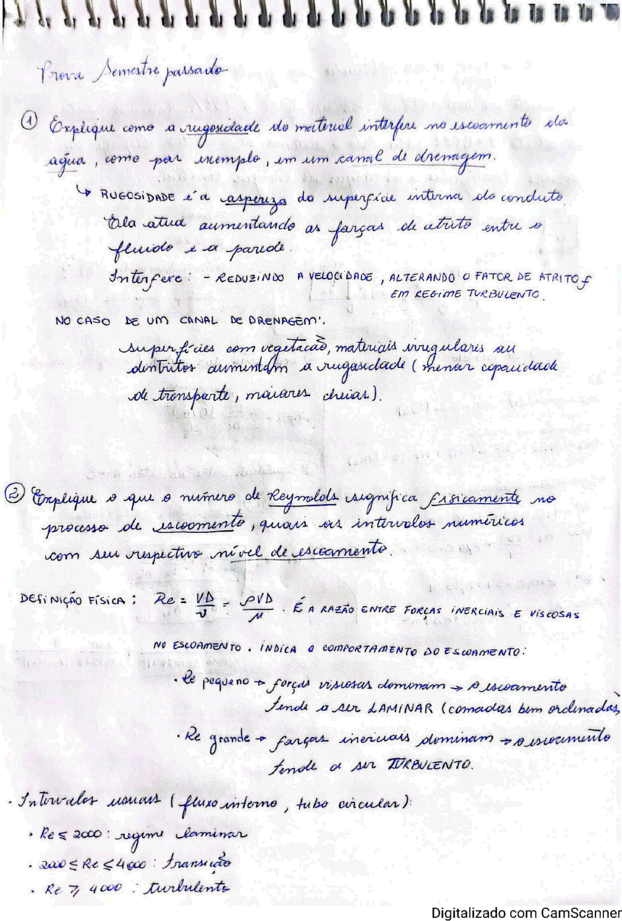 Prova Semestre passado
① Explique como a rugosidade do material interfere no escoamento da
água, como por exemplo, em um canal de drenagem.
↳ RUGOSIDADE é a aspereza da superfície interna do conduto.
Ela atua aumentando as forças de atrito entre o
fluido e a parede.
Interfere: - REDUZINDO A VELOCIDADE, ALTERANDO O FATOR DE ATRITO f
EM REGIME TURBULENTO.
NO CASO DE UM CANAL DE DRENAGEM:
superfícies com vegetação, materiais irregulares ou
detritos aumentam a rugosidade (menor capacidade
de transporte, maiores cheias).
② Explique o que o número de Reynolds significa fisicamente no
processo de escoamento, quais os intervalos numéricos
com seu respectivo nível de escoamento.
DEFINIÇÃO FÍSICA: Re = VD/ν = ρVD/μ. É A RAZÃO ENTRE FORÇAS INERCIAIS E VISCOSAS
NO ESCOAMENTO. INDICA O COMPORTAMENTO DO ESCOAMENTO:
• Re pequeno → forças viscosas dominam → o escoamento
tende a ser LAMINAR (camadas bem ordenadas)
• Re grande → forças inerciais dominam → o escoamento
tende a ser TURBULENTO.
• Intervalos usuais (fluxo interno, tubo circular):
• Re ≤ 2000: regime laminar
• 2000 ≤ Re ≤ 4000: transição
• Re ≥ 4000: turbulento
Digitalizado com CamScanner